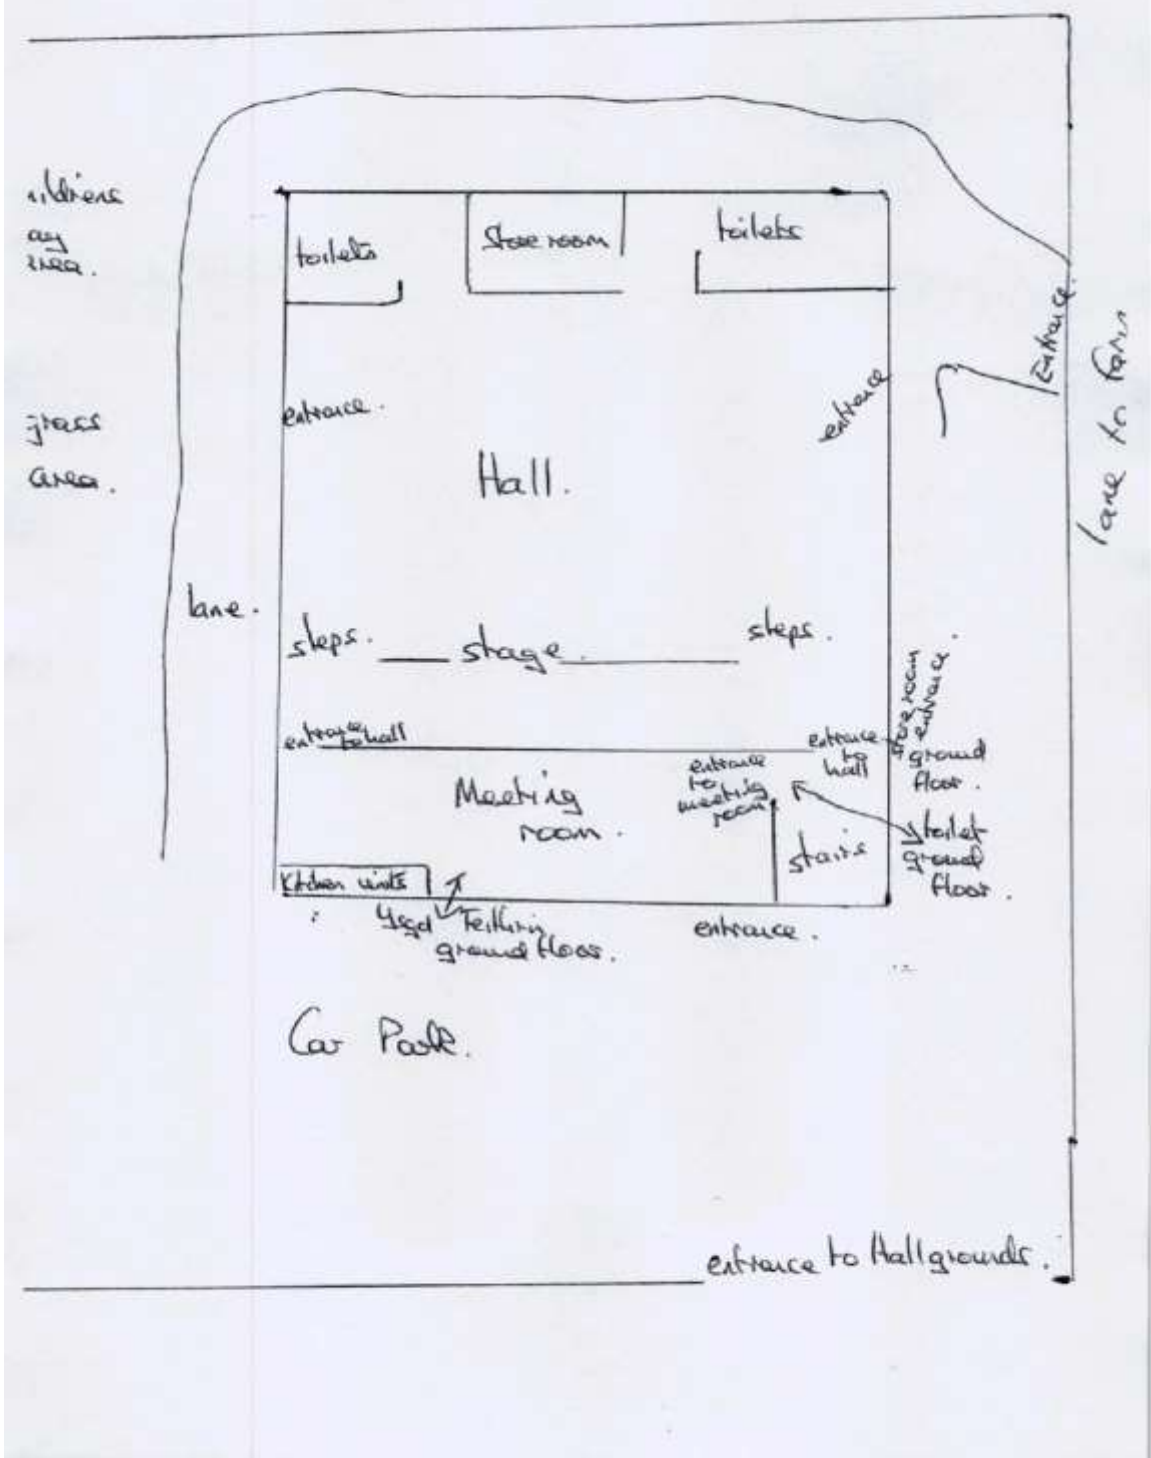 toilets
Store room
toilets
area.
Entrance.
lane to farm
entrance.
entrance
grass
area.
Hall.
lane.
steps.
stage.
steps.
store room
entrance.
ground
floor.
entrance
to hall
entrance
to
hall
entrance
to
meeting
room
Meeting
room.
stairs
toilet
ground
floor.
Kitchen units
Ysgol Feithrin
ground floor.
entrance.
Car Park.
entrance to Hall grounds.